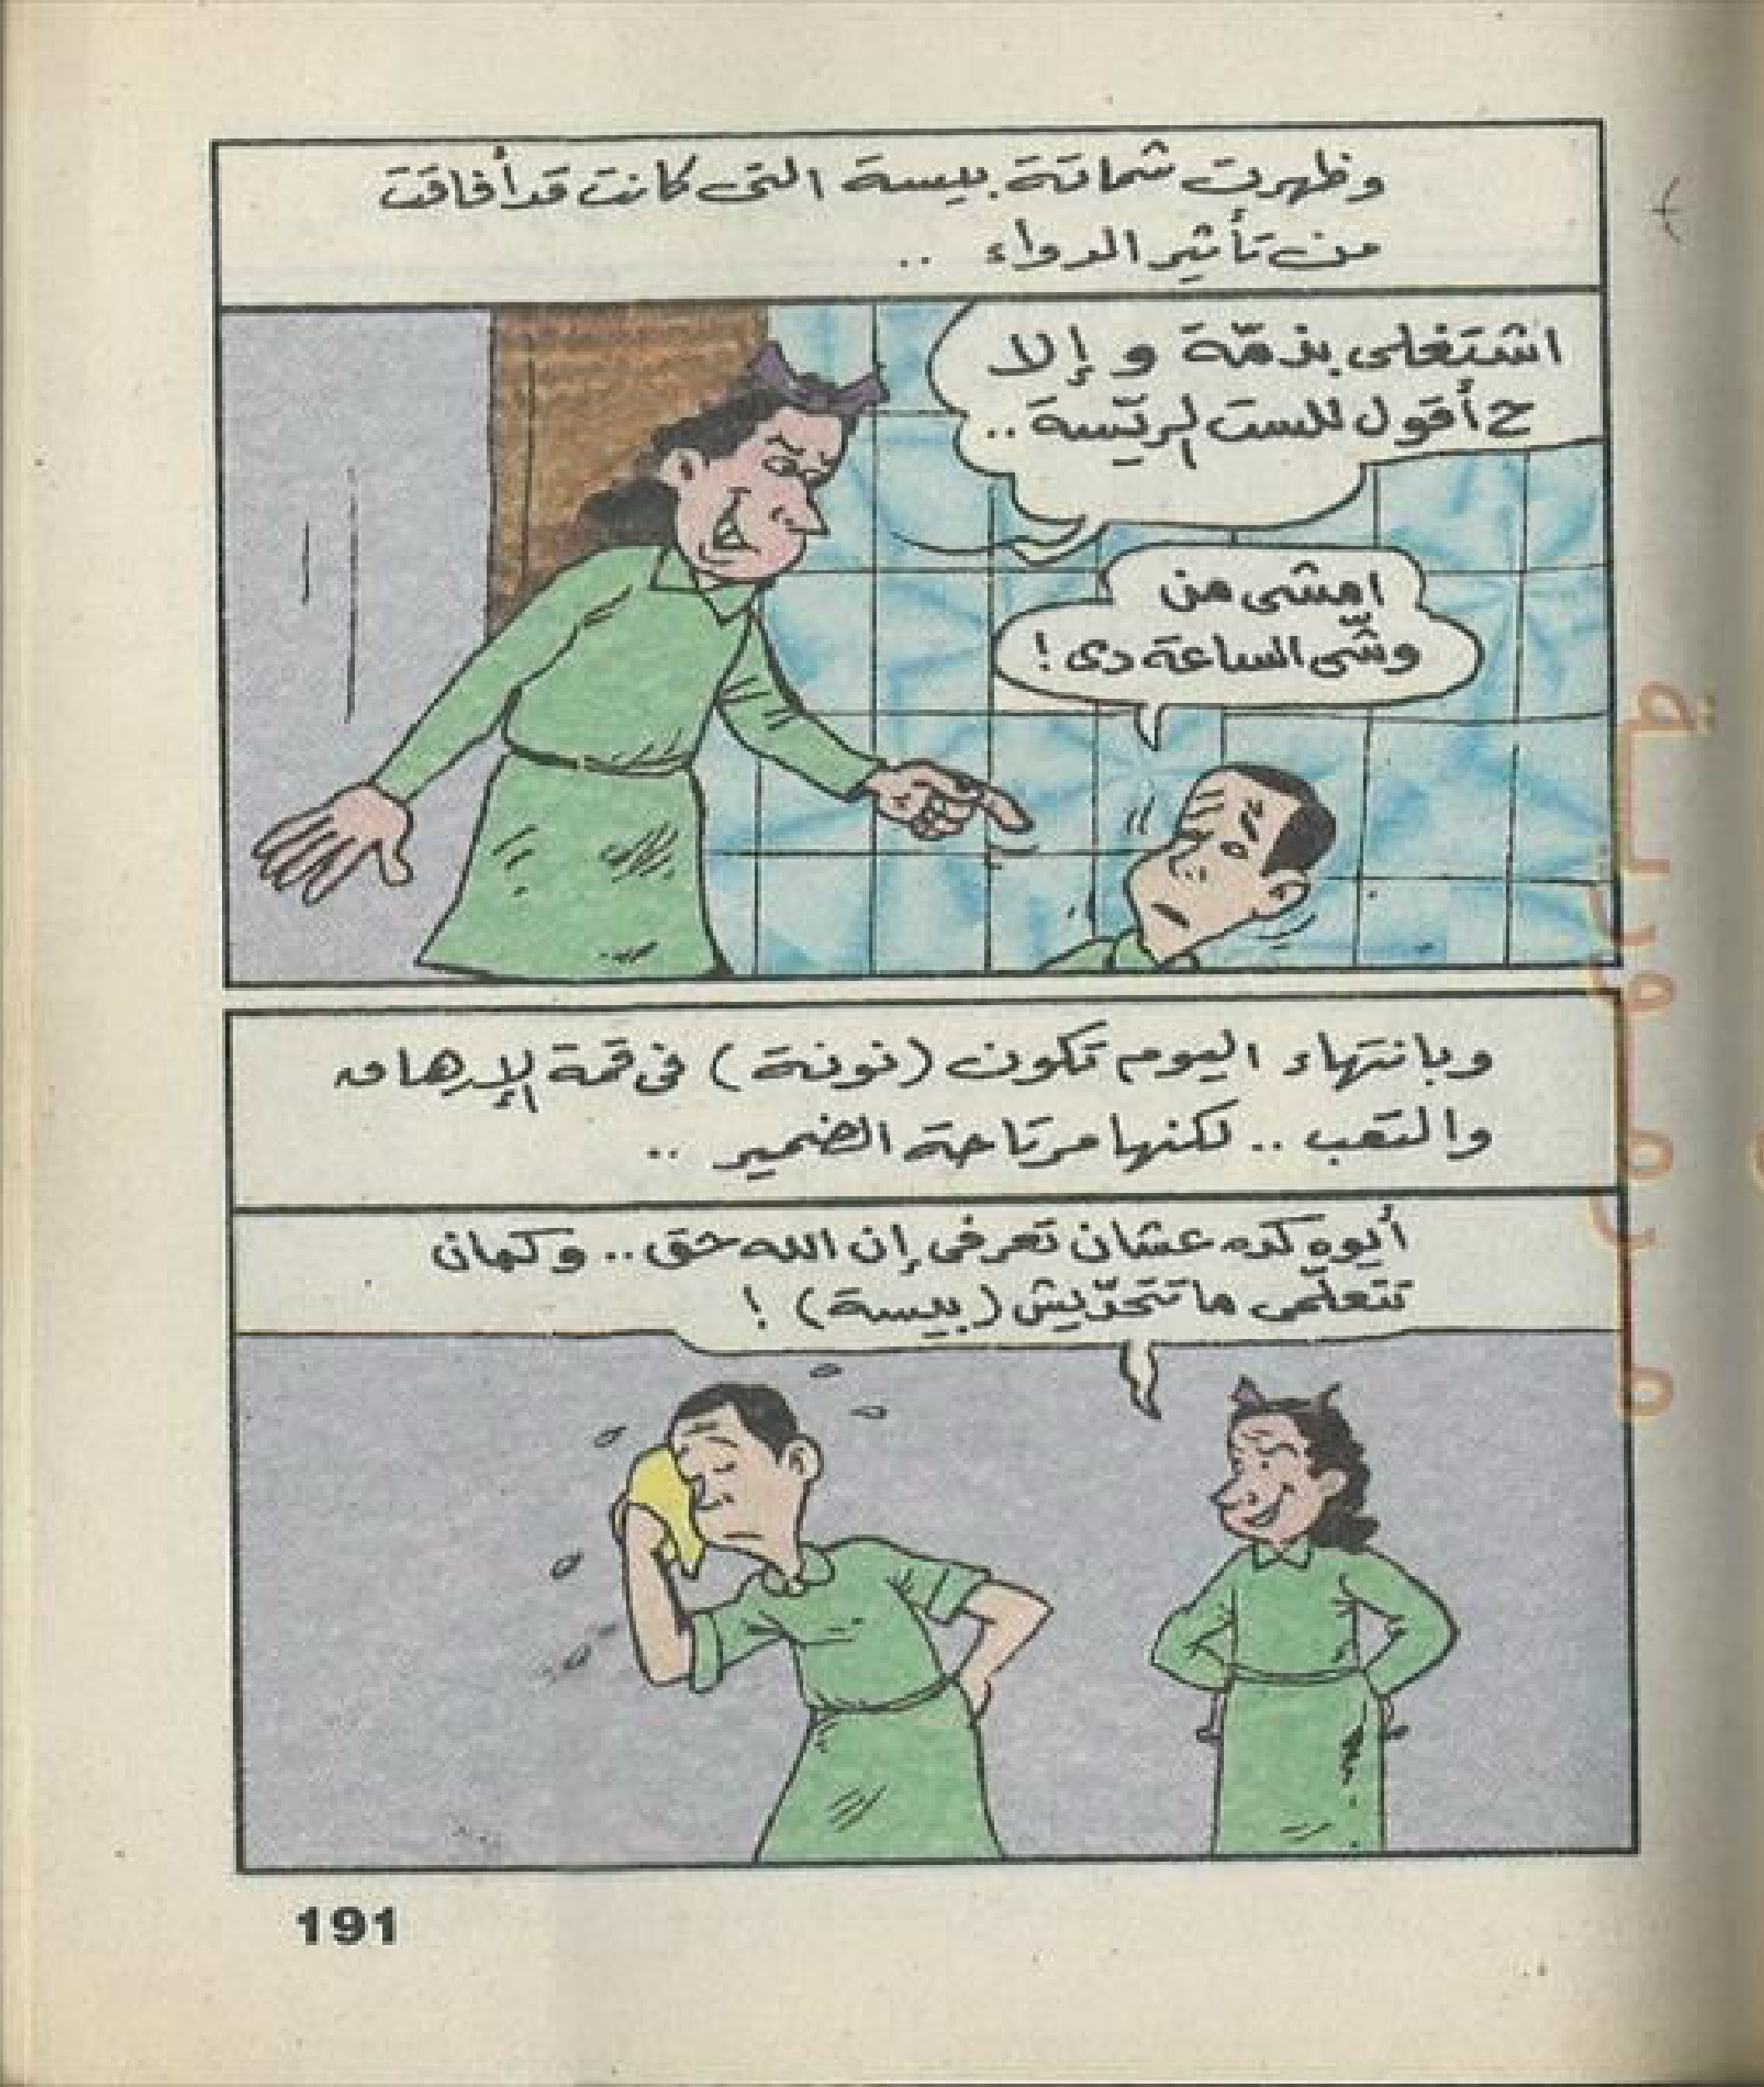 وظهرت شماتة بيسة التى كانت قد أفاقت
من تأثير الدواء ..
اشتغلى بذمّة وإلا
ح أقول للست الريّسة ..
امشى من
وشّى الساعة دى !
وبانتهاء اليوم تكون (نونة) فى قمة الإرهاق
والتعب .. لكنها مرتاحة الضمير ..
أيوه كده عشان تعرفى إن الله حق .. وكمان
تتعلّمى ما تتحدّيش (بيسة) !
191